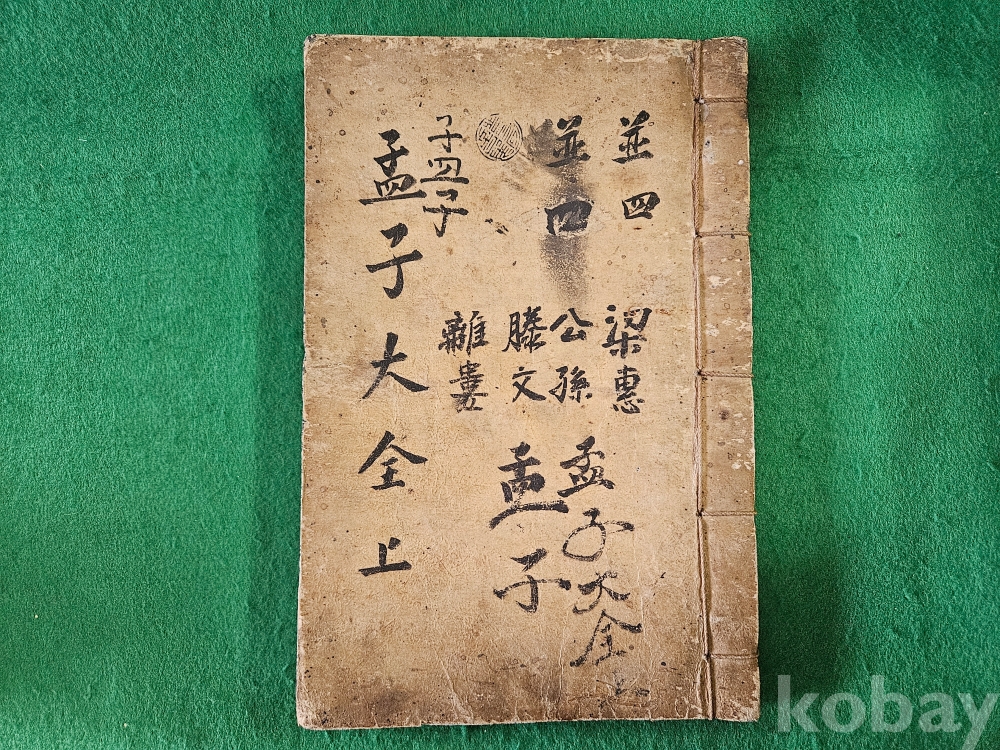 並四
並四
梁惠
公孫
滕文
離婁
子孟子
孟子大全上
孟子大全上
孟子
kobay